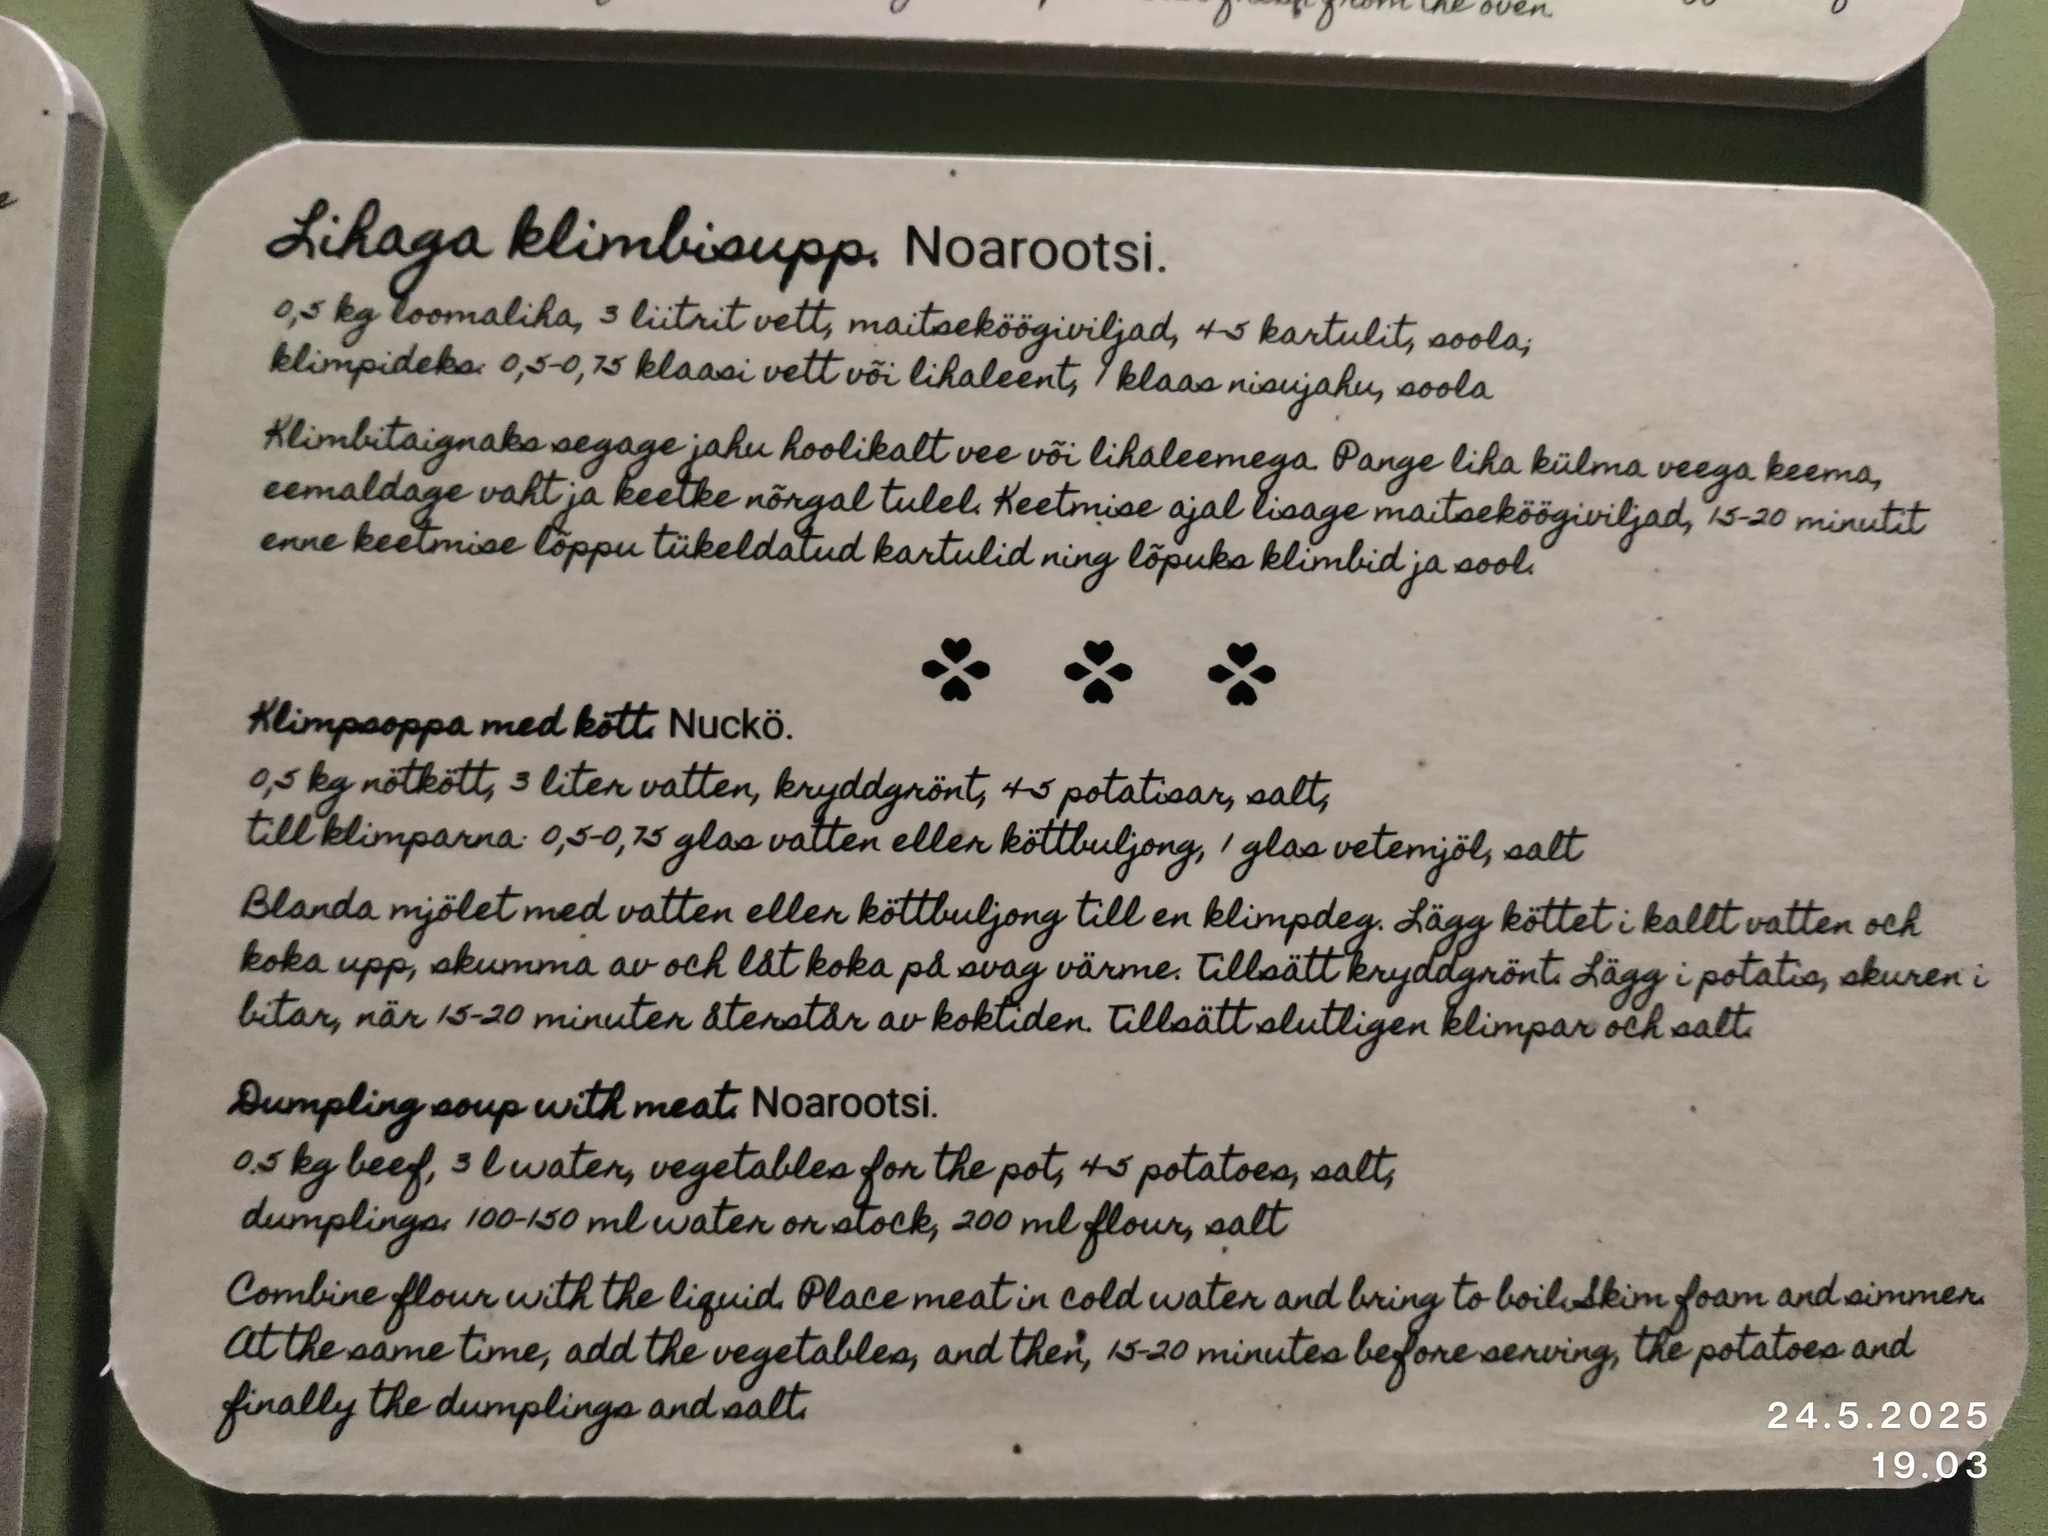 from the oven.
Lihaga klimbisupp. Noarootsi.
0,5 kg loomaliha, 3 liitrit vett, maitseköögiviljad, 4-5 kartulit, soola;
klimpideks: 0,5-0,75 klaasi vett või lihaleent, 1 klaas nisujahu, soola
Klimbitaignaks segage jahu hoolikalt vee või lihaleemega. Pange liha külma veega keema,
eemaldage vaht ja keetke nõrgal tulel. Keetmise ajal lisage maitseköögiviljad, 15-20 minutit
enne keetmise lõppu tükeldatud kartulid ning lõpuks klimbid ja sool.
Klimpsoppa med kött. Nuckö.
0,5 kg nötkött, 3 liter vatten, kryddgrönt, 4-5 potatisar, salt,
till klimparna: 0,5-0,75 glas vatten eller köttbuljong, 1 glas vetemjöl, salt
Blanda mjölet med vatten eller köttbuljong till en klimpdeg. Lägg köttet i kallt vatten och
koka upp, skumma av och låt koka på svag värme. Tillsätt kryddgrönt. Lägg i potatis, skuren i
bitar, när 15-20 minuter återstår av koktiden. Tillsätt slutligen klimpar och salt.
Dumpling soup with meat. Noarootsi.
0.5 kg beef, 3 l water, vegetables for the pot, 4-5 potatoes, salt,
dumplings: 100-150 ml water or stock, 200 ml flour, salt
Combine flour with the liquid. Place meat in cold water and bring to boil. Skim foam and simmer.
At the same time, add the vegetables, and then, 15-20 minutes before serving, the potatoes and
finally the dumplings and salt.
24.5.2025
19.03